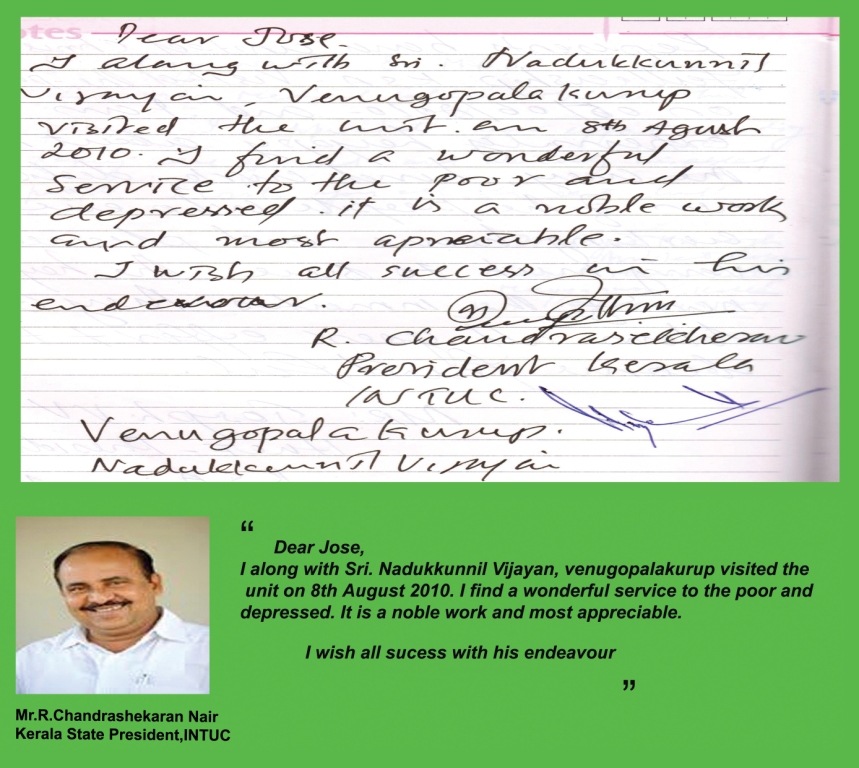 otes
Dear Jose.
I along with Sri. Nadukkunnil
Vijayan, Venugopalakurup
visited the unit on 8th Agust
2010. I find a wonderful
service to the poor and
depressed. it is a noble work
and most apreciable.
I wish all success in his
endeavour.
R. Chandrasekheran
President Kerala
INTUC.
Venugopalakurup.
Nadukkunnil Vijayan
“
Dear Jose,
I along with Sri. Nadukkunnil Vijayan, venugopalakurup visited the
unit on 8th August 2010. I find a wonderful service to the poor and
depressed. It is a noble work and most appreciable.
I wish all sucess with his endeavour
”
Mr.R.Chandrashekaran Nair
Kerala State President,INTUC